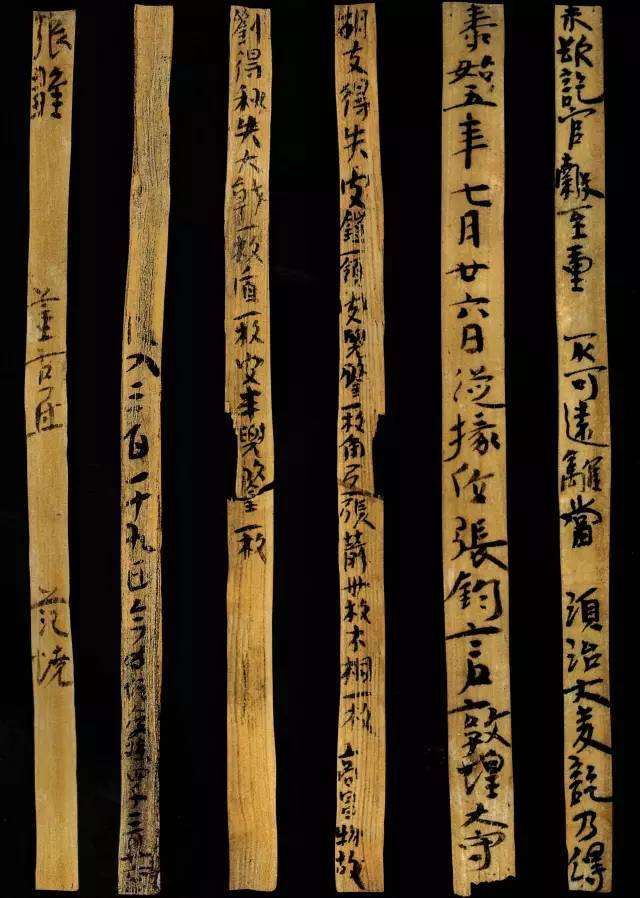 未欲訖官穀至重 不可遠離當 須治大麦訖乃得
泰始五年七月廿六日從掾位張鈞言敦煌大守
胡支得失皮鎧一領皮兜鍪一枚角弓一張箭卅枚木桐一枚 高昌物故
劉得秋失大戟一枚盾一枚皮兜鍪一枚
入三百一十九匹今
張雛 董 范燒